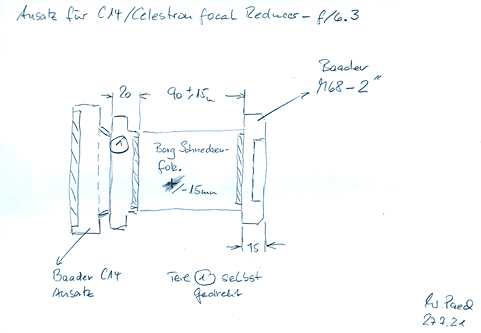 Ansatz für C14/Celestron focal Reducer - f/6.3
Baader
M68-2"
20
90 ± 15
1
Borg Schnecken-
fok.
+/-15mm
15
Baader C14
Ansatz
Teil 1 selbst
gedreht
27.7.21